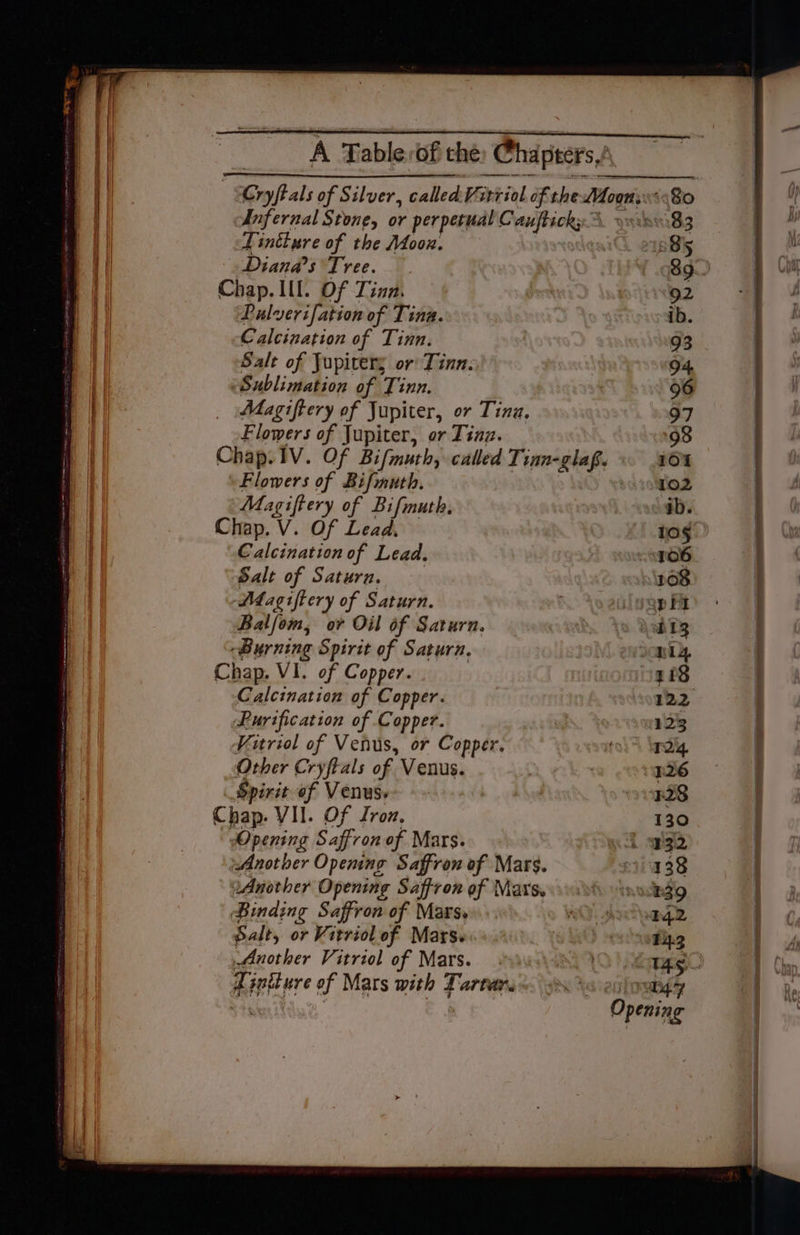 A Table of the Chapters.
Cryſtals of Silver, called Vitriol of the Moon. 80
Infernal Stone, or perpetual Cauſtick. 83
Tincture of the Moon. 85
Diana's Tree. 89
Chap. III. Of Tinn. 92
Pulveriſation of Tinn. ib.
Calcination of Tinn. 93
Salt of Jupiter, or Tinn. 94
Sublimation of Tinn. 96
Magiſtery of Jupiter, or Tinn. 97
Flowers of Jupiter, or Tinn. 98
Chap. IV. Of Biſmuth, called Tinn-glaſs. 101
Flowers of Biſmuth. 102
Magiſtery of Biſmuth. ib.
Chap. V. Of Lead. 105
Calcination of Lead. 106
Salt of Saturn. 108
Magiſtery of Saturn. 111
Balſom, or Oil of Saturn. 113
Burning Spirit of Saturn. 114
Chap. VI. of Copper. 118
Calcination of Copper. 122
Purification of Copper. 123
Vitriol of Venus, or Copper. 124
Other Cryſtals of Venus. 126
Spirit of Venus. 128
Chap. VII. Of Iron. 130
Opening Saffron of Mars. 132
Another Opening Saffron of Mars. 138
Another Opening Saffron of Mars. 139
Binding Saffron of Mars. 142
Salt, or Vitriol of Mars. 143
Another Vitriol of Mars. 145
Tincture of Mars with Tartar. 147
Opening